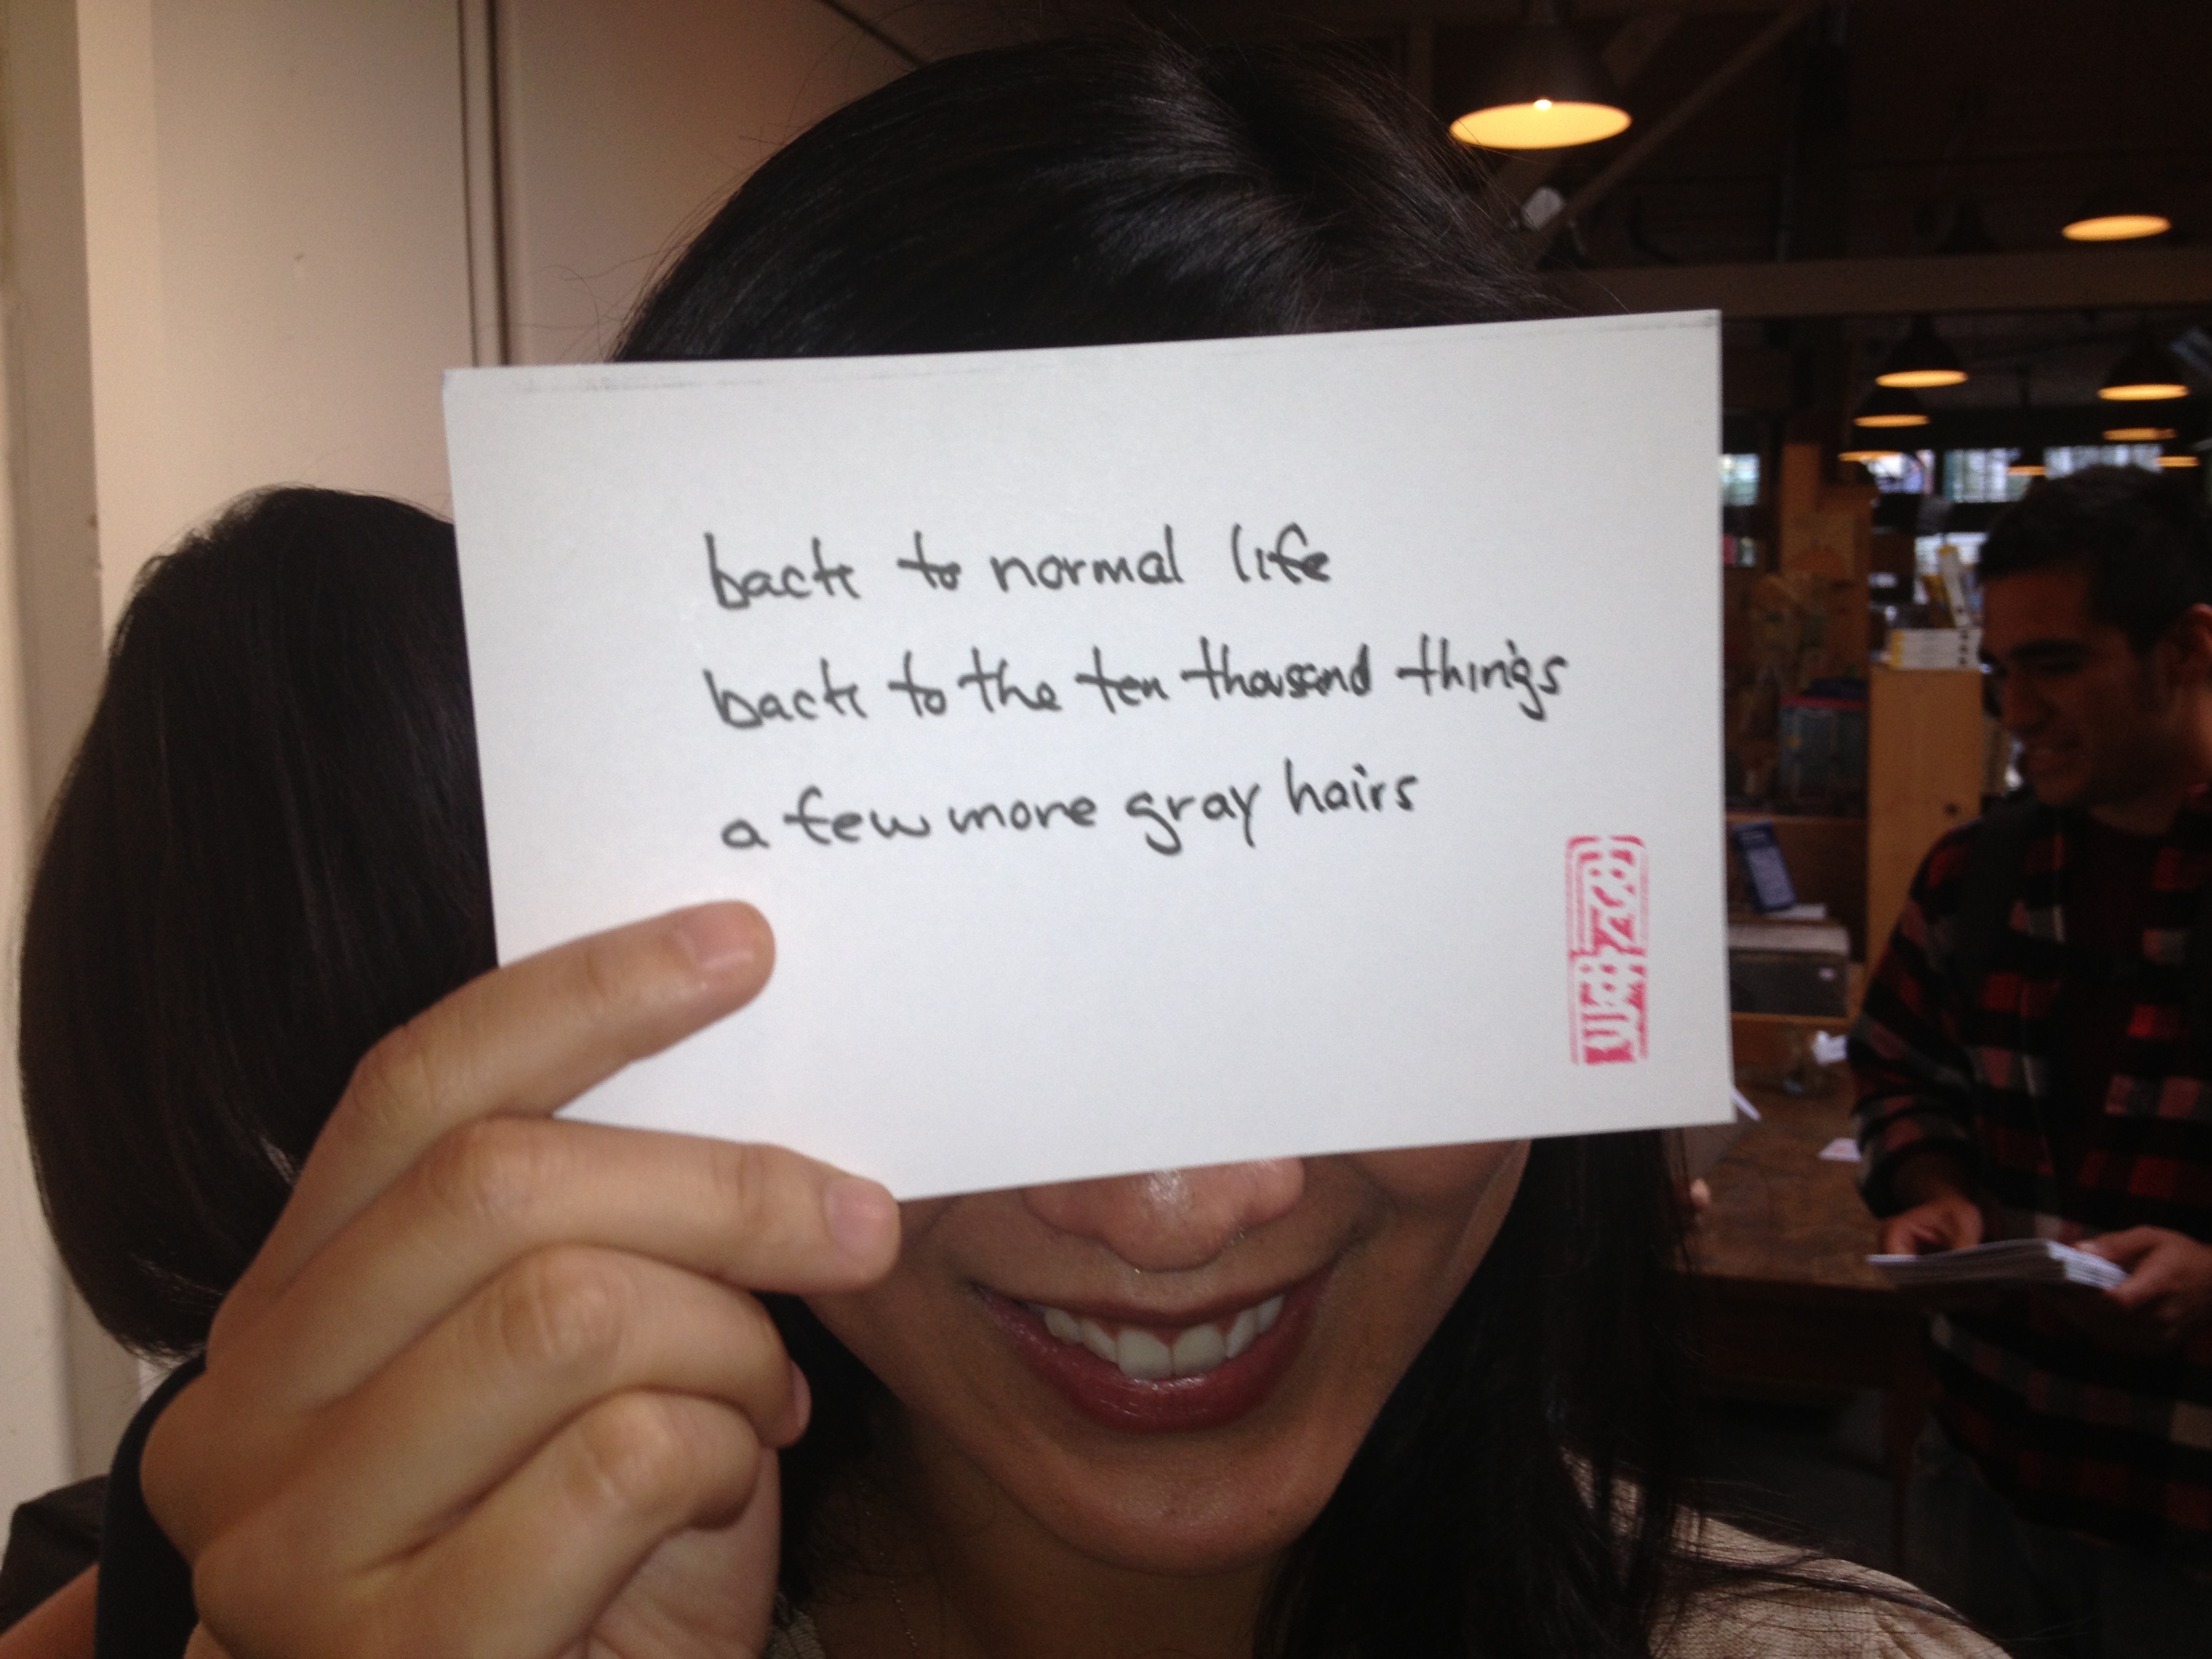 back to normal life
back to the ten thousand things
a few more gray hairs